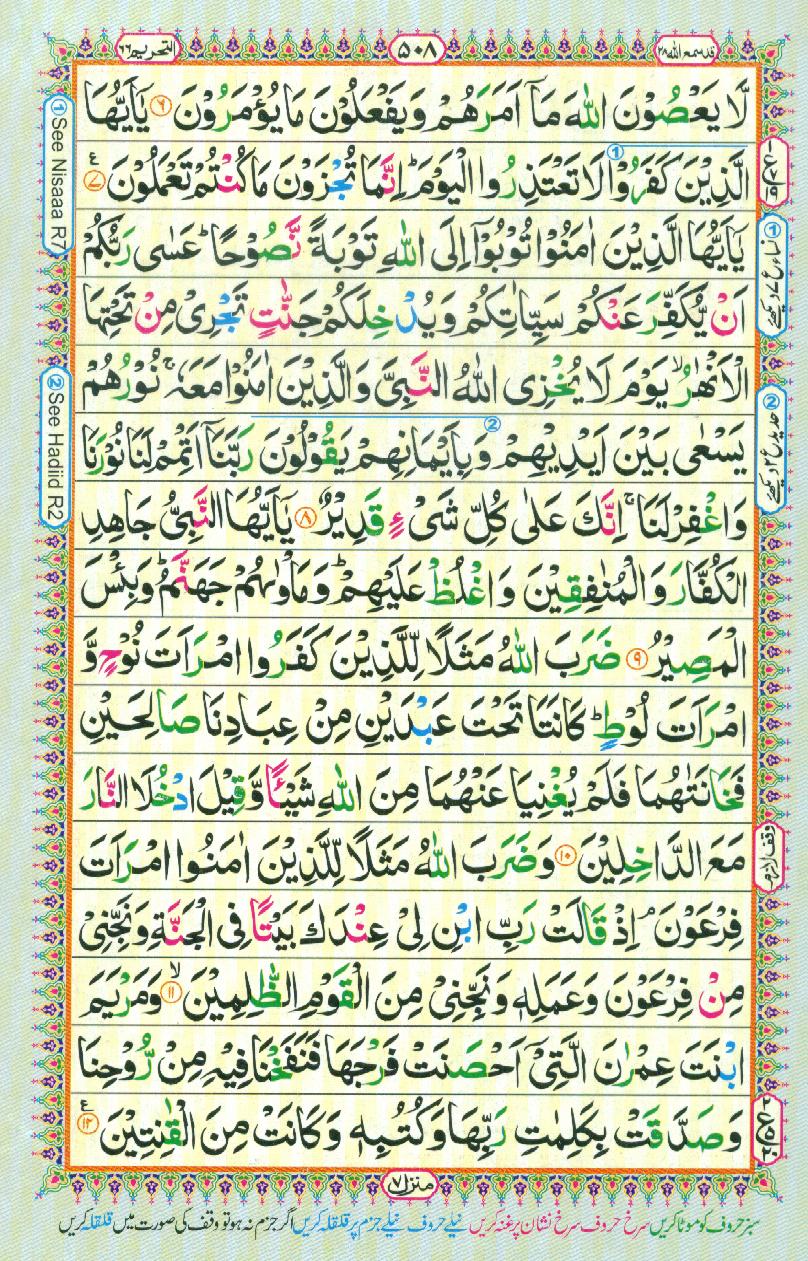 قدسمع الله ٢٨
٥٠٨
التحريم ٦٦
لَّا يَعْصُوْنَ اللّٰهَ مَآ اَمَرَهُمْ وَيَفْعَلُوْنَ مَا يُؤْمَرُوْنَ ۶ يٰۤاَيُّهَا
الَّذِيْنَ كَفَرُوْا لَا تَعْتَذِرُوا الْيَوْمَ ؕ اِنَّمَا تُجْزَوْنَ مَا كُنْتُمْ تَعْمَلُوْنَ ۷ ع
يٰۤاَيُّهَا الَّذِيْنَ اٰمَنُوْا تُوْبُوْۤا اِلَى اللّٰهِ تَوْبَةً نَّصُوْحًا ؕ عَسٰى رَبُّكُمْ
اَنْ يُّكَفِّرَ عَنْكُمْ سَيِّاٰتِكُمْ وَيُدْخِلَكُمْ جَنّٰتٍ تَجْرِىْ مِنْ تَحْتِهَا
الْاَنْهٰرُ ۙ يَوْمَ لَا يُخْزِى اللّٰهُ النَّبِىَّ وَالَّذِيْنَ اٰمَنُوْا مَعَهٗ ۚ نُوْرُهُمْ
يَسْعٰى بَيْنَ اَيْدِيْهِمْ وَبِاَيْمَانِهِمْ يَقُوْلُوْنَ رَبَّنَاۤ اَتْمِمْ لَنَا نُوْرَنَا
وَاغْفِرْ لَنَا ۚ اِنَّكَ عَلٰى كُلِّ شَىْءٍ قَدِيْرٌ ۸ يٰۤاَيُّهَا النَّبِىُّ جَاهِدِ
الْكُفَّارَ وَالْمُنٰفِقِيْنَ وَاغْلُظْ عَلَيْهِمْ ؕ وَمَاْوٰىهُمْ جَهَنَّمُ ؕ وَبِئْسَ
الْمَصِيْرُ ۹ ضَرَبَ اللّٰهُ مَثَلًا لِّلَّذِيْنَ كَفَرُوا امْرَاَتَ نُوْحٍ وَّ
امْرَاَتَ لُوْطٍ ؕ كَانَتَا تَحْتَ عَبْدَيْنِ مِنْ عِبَادِنَا صَالِحَيْنِ
فَخَانَتٰهُمَا فَلَمْ يُغْنِيَا عَنْهُمَا مِنَ اللّٰهِ شَيْـًٔا وَّقِيْلَ ادْخُلَا النَّارَ
مَعَ الدّٰخِلِيْنَ ۱۰ وَضَرَبَ اللّٰهُ مَثَلًا لِّلَّذِيْنَ اٰمَنُوا امْرَاَتَ
فِرْعَوْنَ ۘ اِذْ قَالَتْ رَبِّ ابْنِ لِىْ عِنْدَكَ بَيْتًا فِى الْجَنَّةِ وَنَجِّنِىْ
مِنْ فِرْعَوْنَ وَعَمَلِهٖ وَنَجِّنِىْ مِنَ الْقَوْمِ الظّٰلِمِيْنَ ۱۱ ۙ وَمَرْيَمَ
ابْنَتَ عِمْرٰنَ الَّتِىْۤ اَحْصَنَتْ فَرْجَهَا فَنَفَخْنَا فِيْهِ مِنْ رُّوْحِنَا
وَصَدَّقَتْ بِكَلِمٰتِ رَبِّهَا وَكُتُبِهٖ وَكَانَتْ مِنَ الْقٰنِتِيْنَ ۱۲ ع
① نساء ع ۷ دیکھئے
② حدید ع ۲ دیکھئے
وقف لازم
① See Nisaaa R7
② See Hadiid R2
منزل ۷
سبز حروف کو موٹا کریں سرخ حروف سرخ نشان پر غنہ کریں نیلے حروف نیلے جزم پر قلقلہ کریں اگر جزم نہ ہو تو وقف کی صورت میں قلقلہ کریں